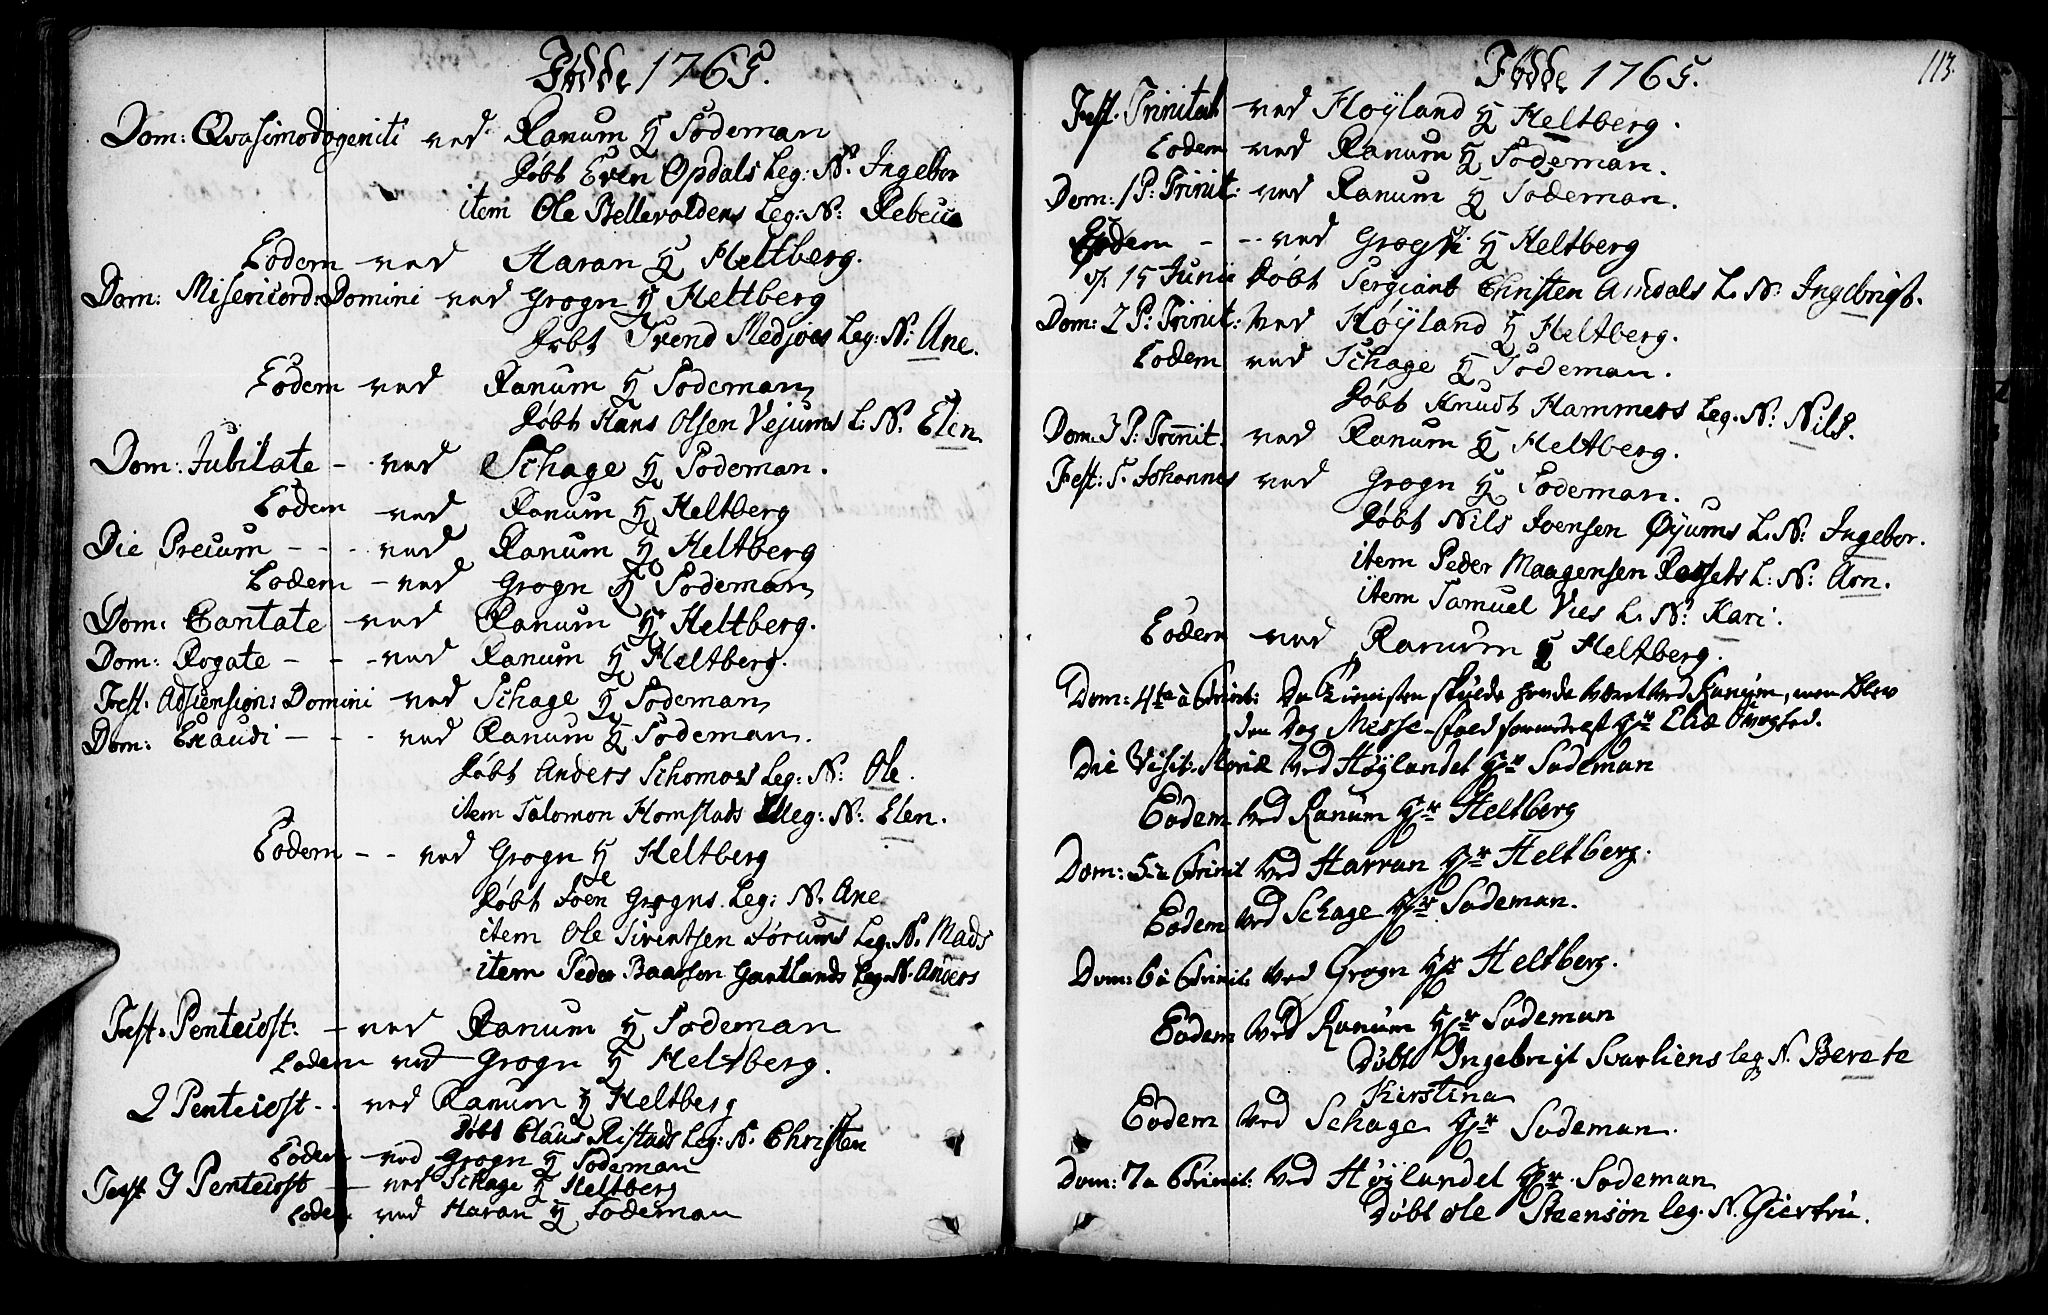 Fødde 1765.
Dom: Qvasimodogeniti ved Ranum H Sodeman
Døbt Even Opdals Leg: N: Ingebor
item Ole Bellevoldens Leg: N: Rebecca
Eodem ved Haran H Heltberg.
Dom: Misericord: Domini ved Grogn H Heltberg
Døbt Trend Medjoes Leg: N: Ane.
Eodem ved Ranum H Sodeman
Døbt Hans Olsen Vejums L: N: Elen
Dom: Jubilate - ved Schage H Sodeman.
Eodem ved Ranum H Heltberg
Die Precum - - - ved Ranum H Heltberg
Eodem - ved Grogn H Sodeman
Dom: Cantate ved Ranum H Heltberg.
Dom: Rogate - - - ved Ranum H Heltberg.
Fest. Adsension: Domini ved Schage H Sodeman
Dom: Exaudi - - - ved Ranum H Sodeman.
Døbt Anders Schomoes Leg: N: Ole.
item Salomon Homstads Leg: N: Elen.
Eodem - - ved Grogn H Heltberg
Døbt Joen Grogns Leg: N. Ane
item Ole Sivertsen Jørums Leg: N. Mads
item Peder Baarsen Gartlands Leg: N. Anders
Fest: Pentecost: - ved Ranum H Sodeman
Eodem ved Grogn H Heltberg.
2 Pentecost - - ved Ranum H Heltberg
Døbt Claus Ristads Leg: N. Christen
Eodem - ved Grogn H Sodeman
Fest 3 Pentecost - ved Schage H Heltberg
Eodem ved Haran H Sodeman
Fødde 1765.
113.
Fest. Trinitat ved Høyland H Heltberg.
Eodem ved Ranum H Sodeman.
Dom: 1 P: Trinit: ved Ranum H Sodeman.
Eodem - - ved Grogn H Heltberg
15 Junii Døbt Sergiant Christen Amdals L. N. Ingebrigt.
Dom: 2 P: Trinit: ved Høyland H Heltberg.
Eodem ved Schage H Sodeman.
Døbt Knudt Hammers Leg: N: Nils.
Dom. 3 P: Trinit. ved Ranum H Heltberg.
Fest: S. Johannes ved Grogn H Sodeman.
Døbt Nils Joensen Øyums L. N: Ingebor.
item Peder Maagensen L: N: Arn.
item Samuel Vies L. N: Kari.
Eodem ved Ranum H Heltberg.
Dom: 4ta à Trinit: Da Tienisten skulde hende været ved Ranum, men blev
den Dag Messe-fald
Die Visit: Mariæ ved Høylandet Hr Sodeman
Eodem ved Ranum Hr Heltberg
Dom: 5. à Trinit ved Harran Hr Heltberg.
Eodem ved Schage Hr Sodeman.
Dom: 6 à Trinit: ved Grogn Hr Heltberg.
Eodem ved Ranum Hr Sodeman
Døbt Ingebrigt Svarliens leg N. Berete
Kirstina
Eodem ved Schage Hr Sodeman.
Dom: 7 à Trinit: ved Høylandet Hr Sodeman
Døbt Ole Steensøn leg. N. Giertru.